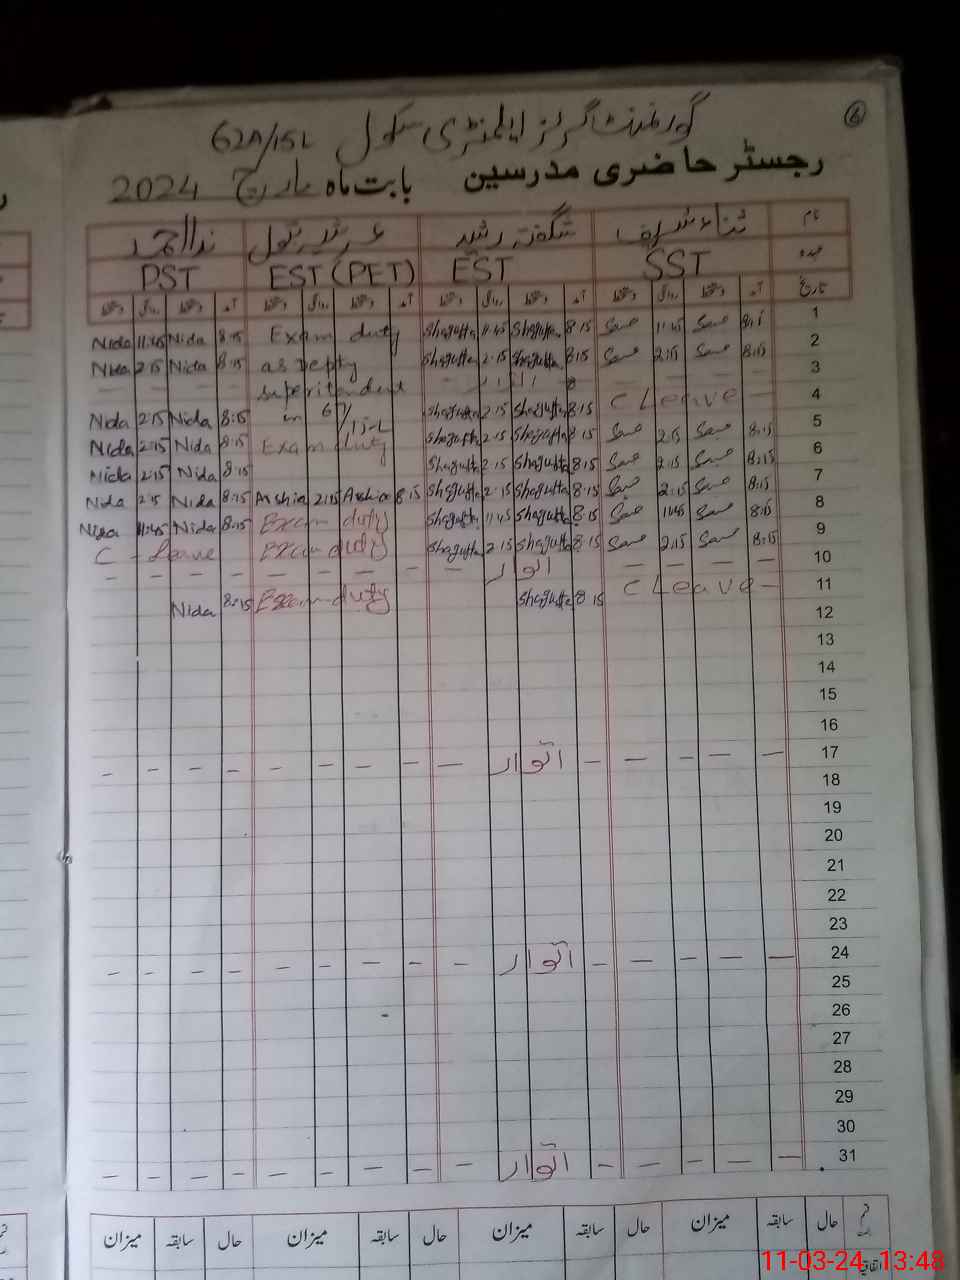 6
گورنمنٹ گرلز ایلمنٹری سکول 62A/15L
رجسٹر حاضری مدرسین بابت ماہ مارچ 2024
نام ثناء شریف شگفتہ رشید ندا احمد
عہدہ SST EST EST (PET) PST
تاریخ آمد دستخط روانگی دستخط آمد دستخط روانگی دستخط آمد دستخط روانگی دستخط آمد دستخط روانگی دستخط
Nida 11:45 Nida 8:15 Exam duty Shagufta 11:45 Shagufta 8:15 11:45 8:15 1
Nida 2:15 Nida 8:15 as Depty Shagufta 2:15 Shagufta 8:15 2:15 8:15 2
— — — — superitendent — اتوار — — — — 3
Nida 2:15 Nida 8:15 in 67/15-L Shagufta 2:15 Shagufta 8:15 C Leave — 4
Nida 2:15 Nida 8:15 Exam duty Shagufta 2:15 Shagufta 8:15 2:15 8:15 5
Nida 2:15 Nida 8:15 Shagufta 2:15 Shagufta 8:15 2:15 8:15 6
Nida 2:15 Nida 8:15 Arshia 2:15 Arshia 8:15 Shagufta 2:15 Shagufta 8:15 2:15 8:15 7
Nida 11:45 Nida 8:15 Exam duty Shagufta 11:45 Shagufta 8:15 11:45 8:15 8
C - Leave Exam duty Shagufta 2:15 Shagufta 8:15 2:15 8:15 9
— — — — — — — — — اتوار — — — — 10
Nida 8:15 Exam duty Shagufta 8:15 C Leave — 11
12
13
14
15
16
— — — — — — — — — اتوار — — — — — 17
18
19
20
21
22
23
— — — — — — — — — اتوار — — — — — 24
25
26
27
28
29
30
— — — — — — — — — اتوار — — — — — 31
حال سابقہ میزان حال سابقہ میزان حال سابقہ میزان حال سابقہ میزان
اتفاقیہ
11-03-24 13:48